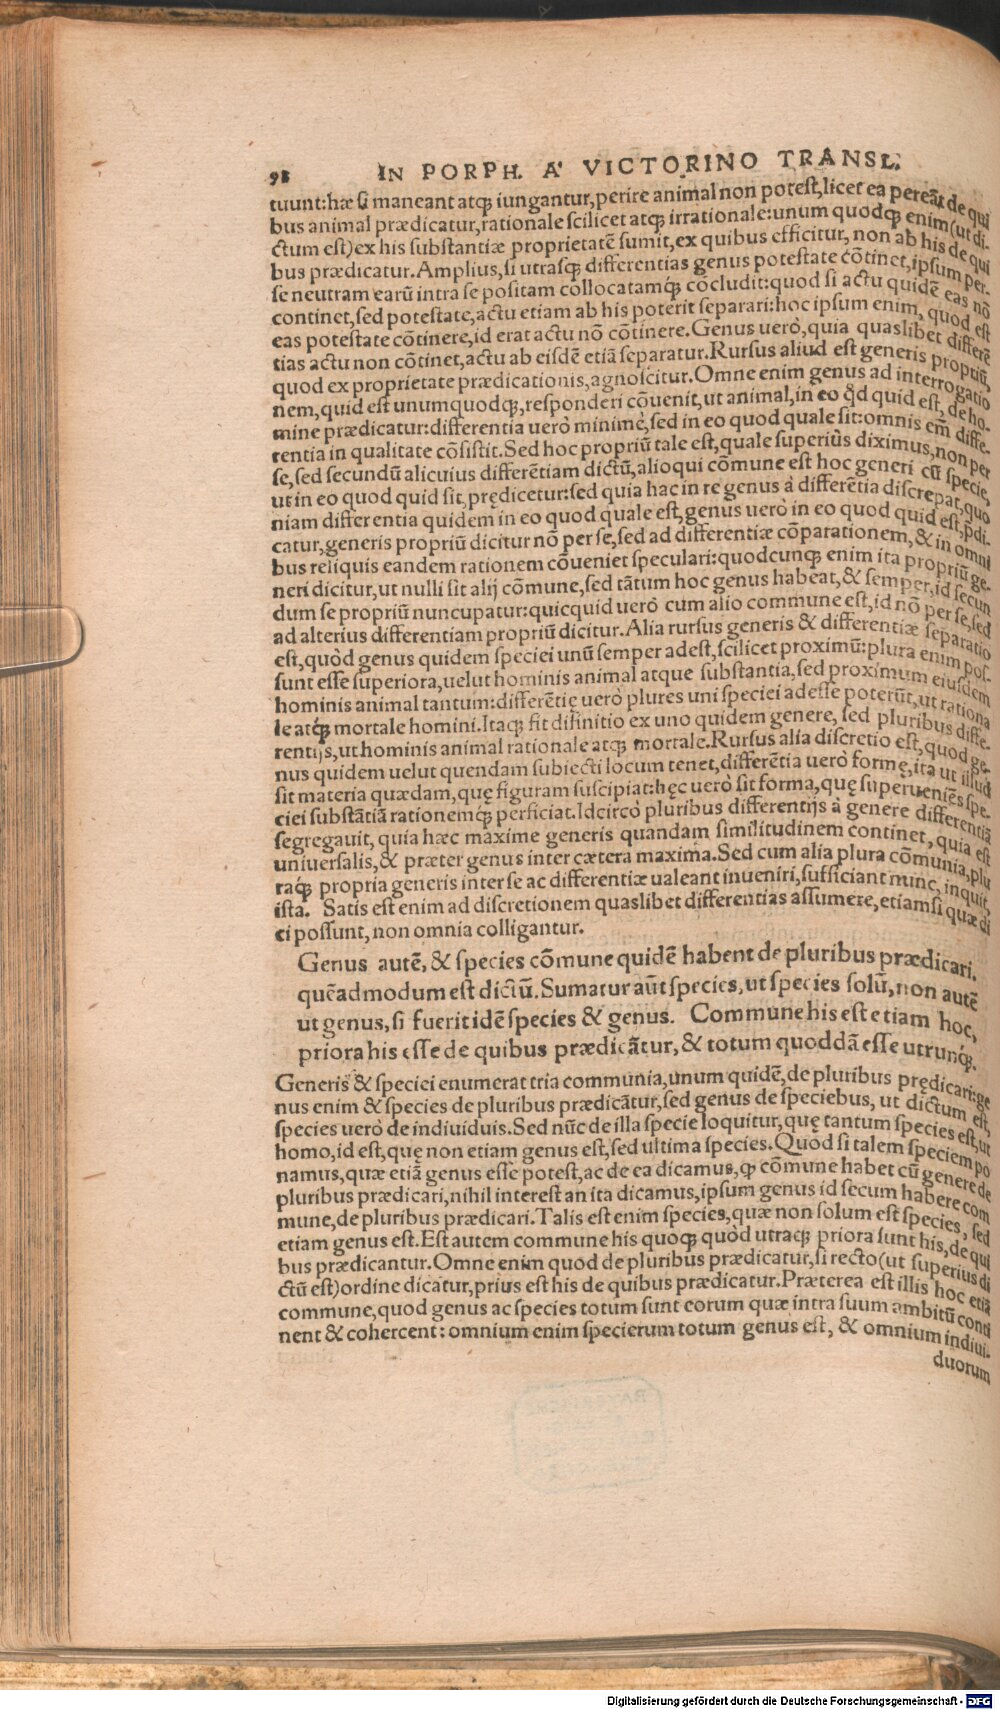 98 IN PORPH. A' VICTORINO TRANSL.
tuunt:hæ si maneant atq; iungantur,perire animal non potest,licet ea pereāt de qui
bus animal prædicatur,rationale scilicet atq; irrationale:unum quodq; enim(ut di-
ctum est)ex his substantiæ proprietatē sumit,ex quibus efficitur, non ab his de qui
bus prædicatur.Amplius,si utrasq; differentias genus potestate cōtinet,ipsum per-
se neutram earū intra se positam collocatamq; cōcludit:quod si actu quidē eas nō
continet,sed potestate,actu etiam ab his poterit separari:hoc ipsum enim, quod est
eas potestate cōtinere,id erat actu nō cōtinere.Genus uerò,quia quaslibet differē
tias actu non cōtinet,actu ab eisdē etiā separatur.Rursus aliud est generis propriū,
quod ex proprietate prædicationis,agnoscitur.Omne enim genus ad interrogatio
nem,quid est unumquodq;,responderi cōuenit,ut animal,in eo qd quid est, de ho-
mine prædicatur:differentia uerò minimè,sed in eo quod quale sit:omnis em̄ diffe-
rentia in qualitate cōsistit.Sed hoc propriū tale est,quale superiùs diximus,non per
se,sed secundū alicuius differētiam dictū,alioqui cōmune est hoc generi cū specie,
ut in eo quod quid sit,prędicetur:sed quia hac in re genus à differētia discrepat,quo
niam differentia quidem in eo quod quale est,genus uerò in eo quod quid est,p̄di-
catur,generis propriū dicitur nō per se,sed ad differentiæ cōparationem,& in omni
bus reliquis eandem rationem cōueniet speculari:quodcunq; enim ita propriū ge-
neri dicitur,ut nulli sit alij cōmune,sed tātum hoc genus habeat,& semper,id secun
dum se propriū nuncupatur:quicquid uerò cum alio commune est,id nō per se,sed
ad alterius differentiam propriū dicitur.Alia rursus generis & differentiæ separatio
est,quòd genus quidem speciei unū semper adest,scilicet proximū:plura enim pos-
sunt esse superiora,uelut hominis animal atque substantia,sed proximum eiusdem
hominis animal tantum:differētię uerò plures uni speciei adesse poterūt,ut rationa
le atq; mortale homini.Itaq; fit difinitio ex uno quidem genere, sed pluribus diffe-
rentijs,ut hominis animal rationale atq; mortale.Rursus alia discretio est,quod ge-
nus quidem uelut quendam subiecti locum tenet,differētia uerò formę,ita ut illud
sit materia quædam,quę figuram suscipiat:hęc uerò sit forma,quę superueniēs spe-
ciei substātiā rationemq; perficiat.Idcircò pluribus differentijs à genere differentiā
segregauit, quia hæc maxime generis quandam similitudinem continet, quia est
uniuersalis,& præter genus inter cætera maxima.Sed cum alia plura cōmunia,plu
raq; propria generis inter se ac differentiæ ualeant inueniri,sufficiant nunc, inquit,
ista. Satis est enim ad discretionem quaslibet differentias assumere,etiamsi quæ di
ci possunt,non omnia colligantur.
Genus autē, & species cōmune quidē habent de pluribus prædicari.
quēadmodum est dictū.Sumatur aūt species,ut species solū,non autē
ut genus,si fuerit idē species & genus. Commune his est etiam hoc,
priora his esse de quibus prædicātur,& totum quoddā esse utrunq;.
Generis & speciei enumerat tria communia,unum quidē,de pluribus prędicari:ge
nus enim & species de pluribus prædicātur,sed genus de speciebus, ut dictum est,
species uerò de indiuiduis.Sed nūc de illa specie loquitur,quę tantum species est,ut
homo,id est,quę non etiam genus est,sed ultima species.Quòd si talem speciem po
namus,quæ etiā genus esse potest,ac de ea dicamus,qp cōmune habet cū genere de
pluribus prædicari,nihil interest an ita dicamus,ipsum genus id secum habere com
mune,de pluribus prædicari.Talis est enim species,quæ non solum est species, sed
etiam genus est.Est autem commune his quoq; quòd utraq; priora sunt his,de qui
bus prædicantur.Omne enim quod de pluribus prædicatur,si recto(ut superius di
ctū est)ordine dicatur,prius est his de quibus prædicatur.Præterea est illis hoc etiā
commune,quod genus ac species totum sunt eorum quæ intra suum ambitū conti
nent & cohercent: omnium enim specierum totum genus est, & omnium indiui-
duorum
Digitalisierung gefördert durch die Deutsche Forschungsgemeinschaft - DFG